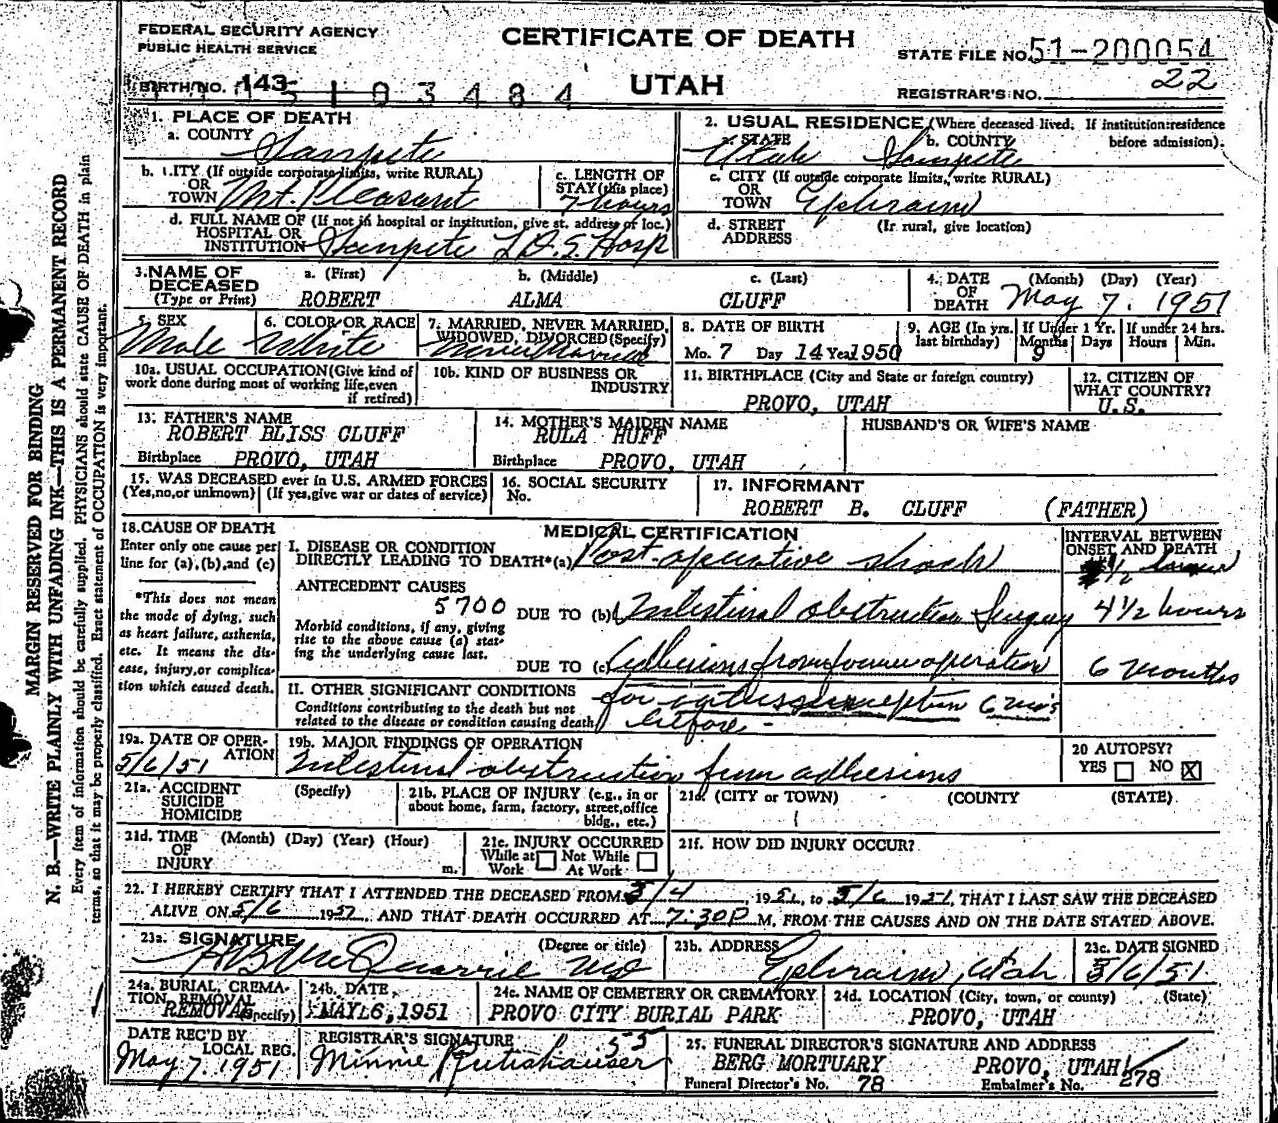 FEDERAL SECURITY AGENCY
PUBLIC HEALTH SERVICE
CERTIFICATE OF DEATH
UTAH
STATE FILE NO. 51-200054
REGISTRAR'S NO. 22
BIRTH NO. 143
5 1 0 3 4 8 4
MARGIN RESERVED FOR BINDING
N. B.—WRITE PLAINLY WITH UNFADING INK—THIS IS A PERMANENT RECORD
Every item of information should be carefully supplied. PHYSICIANS should state CAUSE OF DEATH in plain
terms, so that it may be properly classified. Exact statement of OCCUPATION is very important.
1. PLACE OF DEATH
a. COUNTY Sanpete
b. CITY (If outside corporate limits, write RURAL)
OR
TOWN Mt. Pleasant
c. LENGTH OF
STAY (this place)
7 hours
d. FULL NAME OF (If not in hospital or institution, give st. address or loc.)
HOSPITAL OR
INSTITUTION Sanpete L.D.S. Hosp
2. USUAL RESIDENCE (Where deceased lived. If institution: residence
before admission).
a. STATE Utah b. COUNTY Sanpete
c. CITY (If outside corporate limits, write RURAL)
OR
TOWN Ephraim
d. STREET (If rural, give location)
ADDRESS
3. NAME OF DECEASED
(Type or Print)
a. (First) ROBERT
b. (Middle) ALMA
c. (Last) CLUFF
4. DATE OF DEATH (Month) (Day) (Year)
May 7. 1951
5. SEX
Male
6. COLOR OR RACE
White
7. MARRIED, NEVER MARRIED,
WIDOWED, DIVORCED (Specify)
Never Married
8. DATE OF BIRTH
Mo. 7 Day 14 Year 1950
9. AGE (In yrs. last birthday)
If Under 1 Yr.
Months 9 Days
If under 24 hrs.
Hours Min.
10a. USUAL OCCUPATION (Give kind of
work done during most of working life, even
if retired)
10b. KIND OF BUSINESS OR
INDUSTRY
11. BIRTHPLACE (City and State or foreign country)
PROVO, UTAH
12. CITIZEN OF
WHAT COUNTRY?
U.S.
13. FATHER'S NAME
ROBERT BLISS CLUFF
Birthplace PROVO, UTAH
14. MOTHER'S MAIDEN NAME
RULA HUFF
Birthplace PROVO, UTAH
HUSBAND'S OR WIFE'S NAME
15. WAS DECEASED ever in U.S. ARMED FORCES
(Yes, no, or unknown) (If yes, give war or dates of service)
16. SOCIAL SECURITY
No.
17. INFORMANT
ROBERT B. CLUFF (FATHER)
18. CAUSE OF DEATH
Enter only one cause per
line for (a), (b), and (c)
*This does not mean
the mode of dying, such
as heart failure, asthenia,
etc. It means the dis-
ease, injury, or complica-
tion which caused death.
MEDICAL CERTIFICATION
INTERVAL BETWEEN
ONSET AND DEATH
I. DISEASE OR CONDITION
DIRECTLY LEADING TO DEATH*(a) Post-operative shock
ANTECEDENT CAUSES
5700
DUE TO (b) Intestinal obstruction Surgery 4 1/2 hours
Morbid conditions, if any, giving
rise to the above cause (a) stat-
ing the underlying cause last.
DUE TO (c) Adhesions from former operation 6 months
II. OTHER SIGNIFICANT CONDITIONS
Conditions contributing to the death but not
related to the disease or condition causing death
for intussusception 6 mo's
before -
19a. DATE OF OPER-
ATION
5/6/51
19b. MAJOR FINDINGS OF OPERATION
Intestinal obstruction from adhesions
20 AUTOPSY?
YES NO X
21a. ACCIDENT (Specify)
SUICIDE
HOMICIDE
21b. PLACE OF INJURY (e.g., in or
about home, farm, factory, street, office
bldg., etc.)
21c. (CITY or TOWN) (COUNTY) (STATE)
21d. TIME (Month) (Day) (Year) (Hour)
OF
INJURY m.
21e. INJURY OCCURRED
While at Work Not While At Work
21f. HOW DID INJURY OCCUR?
22. I HEREBY CERTIFY THAT I ATTENDED THE DECEASED FROM 5/4, 1951, to 5/6 1951, THAT I LAST SAW THE DECEASED
ALIVE ON 5/6 1951, AND THAT DEATH OCCURRED AT 7:30P M, FROM THE CAUSES AND ON THE DATE STATED ABOVE.
23a. SIGNATURE (Degree or title)
McQuarrie MD
23b. ADDRESS
Ephraim, Utah
23c. DATE SIGNED
5/6/51
24a. BURIAL, CREMA-
TION, REMOVAL
REMOVAL (Specify)
24b. DATE
MAY 6, 1951
24c. NAME OF CEMETERY OR CREMATORY
PROVO CITY BURIAL PARK
24d. LOCATION (City, town, or county) (State)
PROVO, UTAH
DATE REC'D BY
LOCAL REG.
May 7. 1951
REGISTRAR'S SIGNATURE 55
Minnie Rutishauser
25. FUNERAL DIRECTOR'S SIGNATURE AND ADDRESS
BERG MORTUARY PROVO, UTAH
Funeral Director's No. 78 Embalmer's No. 278